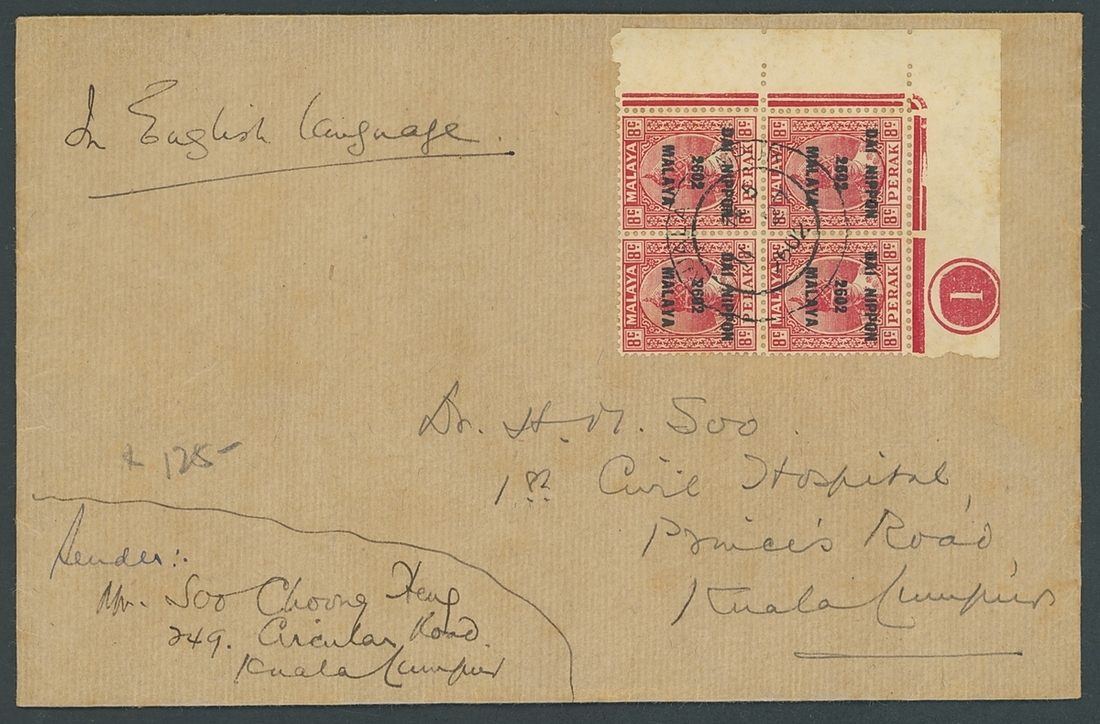 In English Language.
8c MALAYA 8c
DAI NIPPON
2602
MALAYA
8c PERAK 8c
8c MALAYA 8c
DAI NIPPON
2602
MALAYA
8c PERAK 8c
8c MALAYA 8c
DAI NIPPON
2602
MALAYA
8c PERAK 8c
8c MALAYA 8c
DAI NIPPON
2602
MALAYA
8c PERAK 8c
1
Dr. H. M. Soo.
1st Civil Hospital,
Prince's Road,
Kuala Lumpur
125-
Sender:-
Mr. Soo Choong Heng
249. Circular Road
Kuala Lumpur